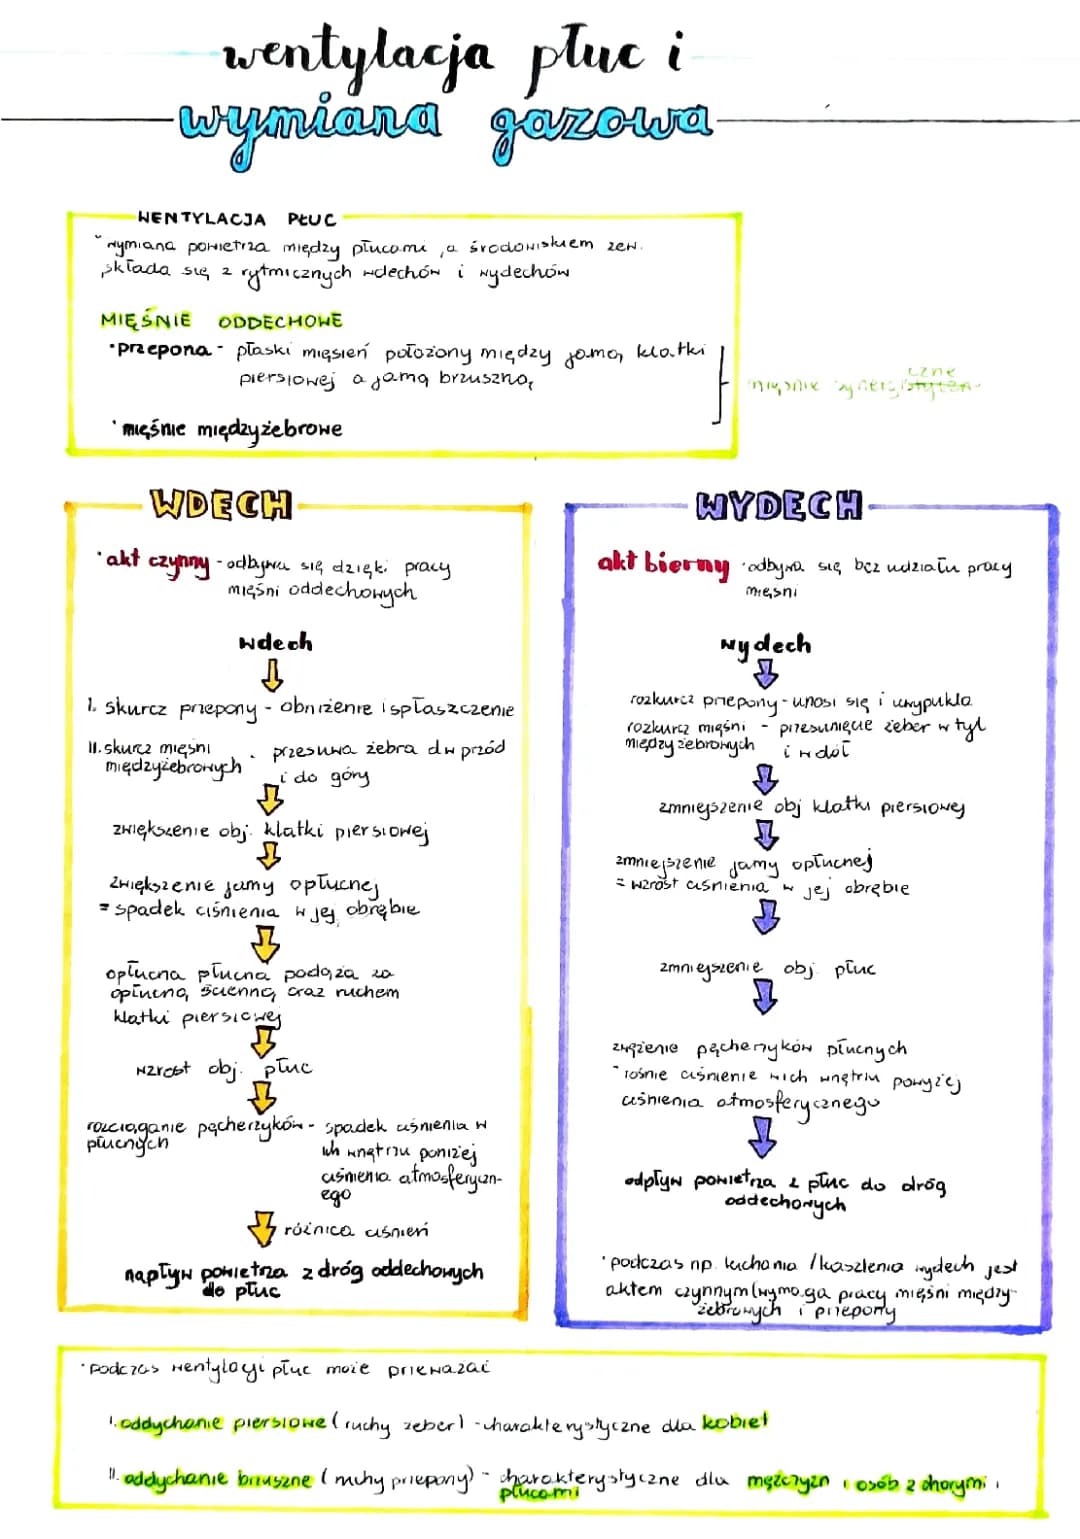 wentylacja płuc i
wymiana gazowa
WENTYLACJA PŁUC
wymiana powietrza między płucami, a środowiskiem zew.
składa się z rytmicznych wdechów i wydechów
MIĘŚNIE ODDECHOWE
•przepona - płaski mięsień położony między jamą klatki
piersiowej a jamą brzuszną
mięśnie synergistyczne
•mięśnie międzyżebrowe
WDECH
•akt czynny - odbywa się dzięki pracy
mięśni oddechowych
wdech
I. skurcz przepony - obniżenie i spłaszczenie
II. skurcz mięśni międzyżebrowych - przesuwa żebra w przód
i do góry
zwiększenie obj. klatki piersiowej
zwiększenie jamy opłucnej
= spadek ciśnienia w jej obrębie
opłucna płucna podąża za
opłucną ścienną oraz ruchem
klatki piersiowej
wzrost obj. płuc
rozciąganie pęcherzyków płucnych - spadek ciśnienia w
ich wnętrzu poniżej
ciśnienia atmosferyczn-
ego
różnica ciśnień
napływ powietrza z dróg oddechowych
do płuc
WYDECH
akt bierny - odbywa się bez udziału pracy
mięśni
wydech
rozkurcz przepony - unosi się i uwypukla
rozkurcz mięśni międzyżebrowych - przesunięcie żeber w tył
i w dół
zmniejszenie obj klatki piersiowej
zmniejszenie jamy opłucnej
= wzrost ciśnienia w jej obrębie
zmniejszenie obj. płuc
zwężenie pęcherzyków płucnych
rośnie ciśnienie w ich wnętrzu powyżej
ciśnienia atmosferycznego
odpływ powietrza z płuc do dróg
oddechowych
•podczas np. kichania / kaszlenia wydech jest
aktem czynnym (wymaga pracy mięśni między-
żebrowych i przepony
•podczas wentylacji płuc może przeważać
I. oddychanie piersiowe (ruchy żeber) - charakterystyczne dla kobiet
II. oddychanie brzuszne (ruchy przepony) - charakterystyczne dla mężczyzn i osób z chorymi
płucami